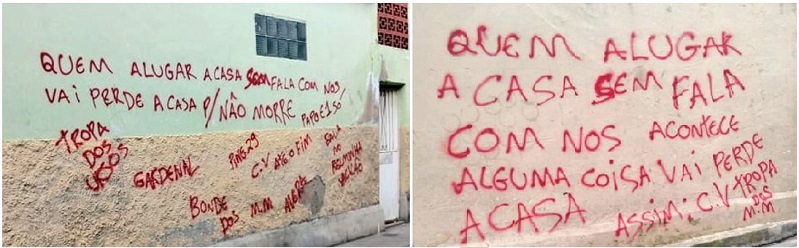 QUEM ALUGAR A CASA SEM FALA COM NOS
VAI PERDE A CASA P/ NÃO MORRE PAPO E 1 SO/
TROPA
DOS
URSOS
GARDENAL
PING.29
C.V ATÉ O FIM
BONDE
DOS M.M
QUEM ALUGAR
A CASA SEM FALA
COM NOS ACONTECE
ALGUMA COISA VAI PERDE
A CASA ASSIM: C.V TROPA
DOS
M.M